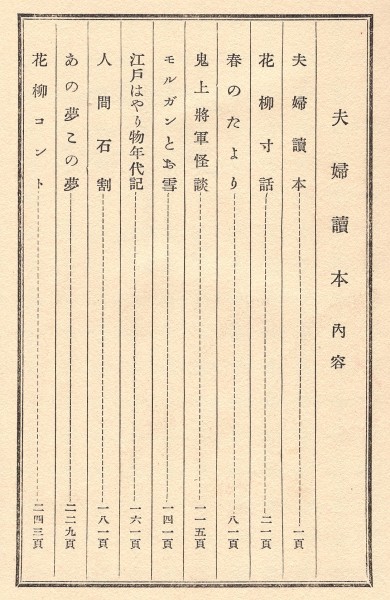 夫婦讀本 內容
夫婦讀本 一頁
花柳寸話 二一頁
春のたより 八一頁
鬼上將軍怪談 一一五頁
モルガンとお雪 一四一頁
江戸はやり物年代記 一六一頁
人間石割 一八一頁
あの夢この夢 二二九頁
花柳コント 二四三頁